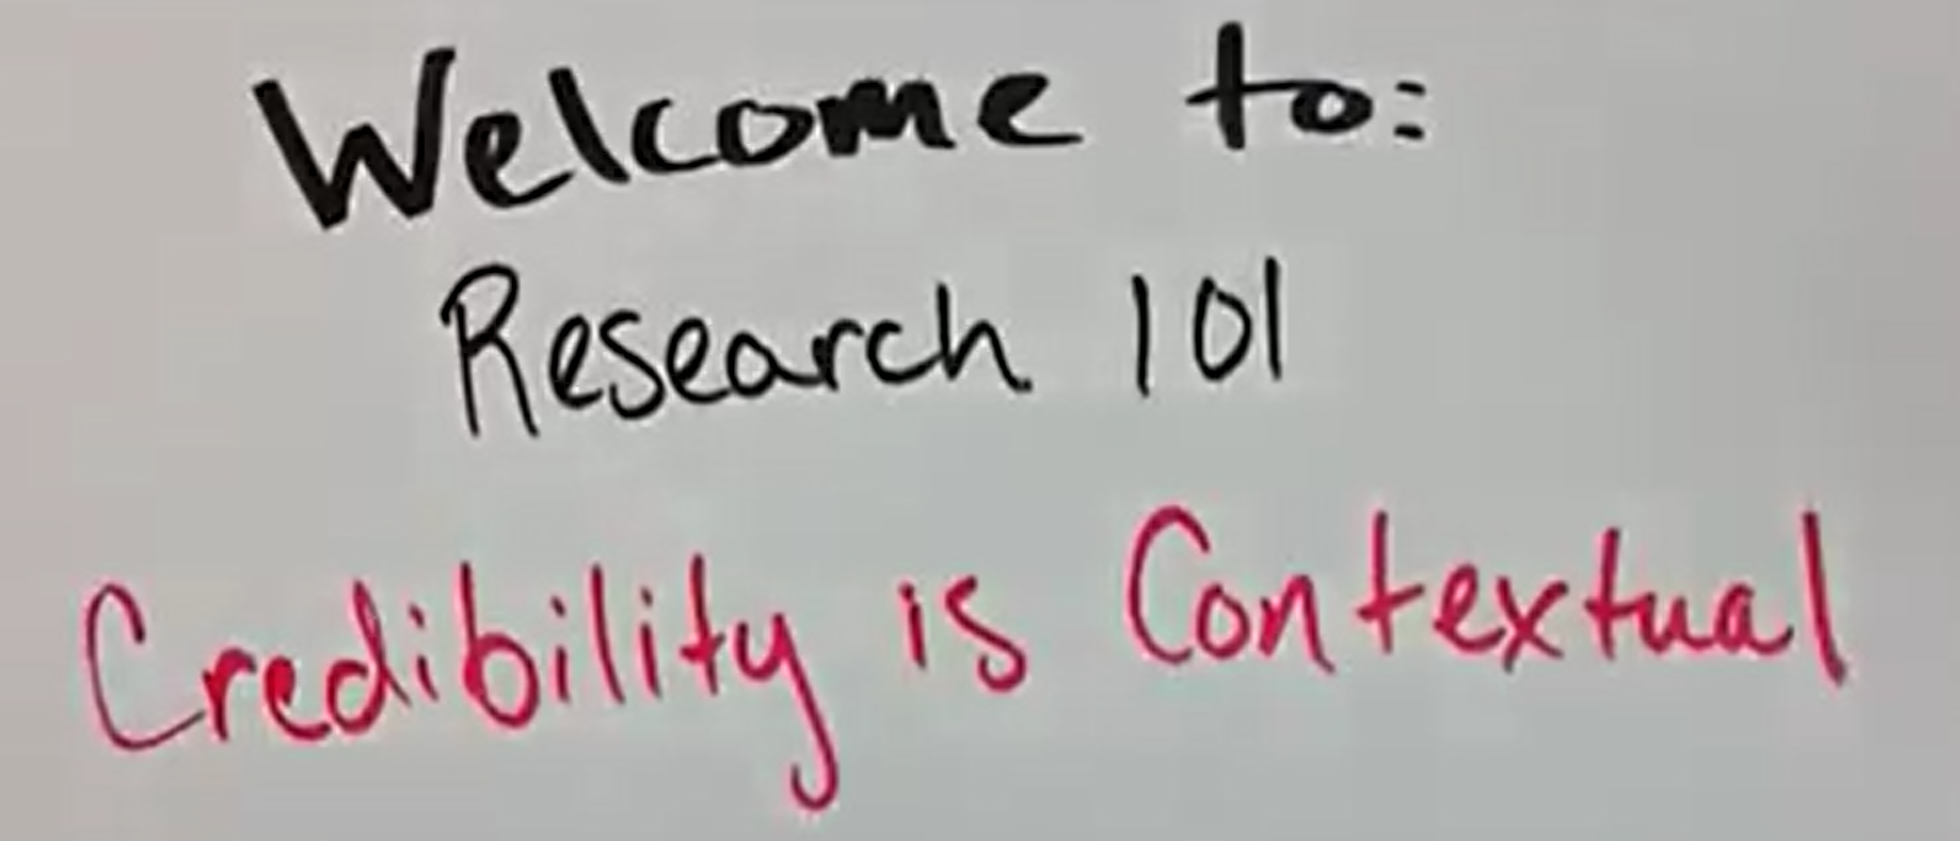 Welcome to:
Research 101
Credibility is Contextual